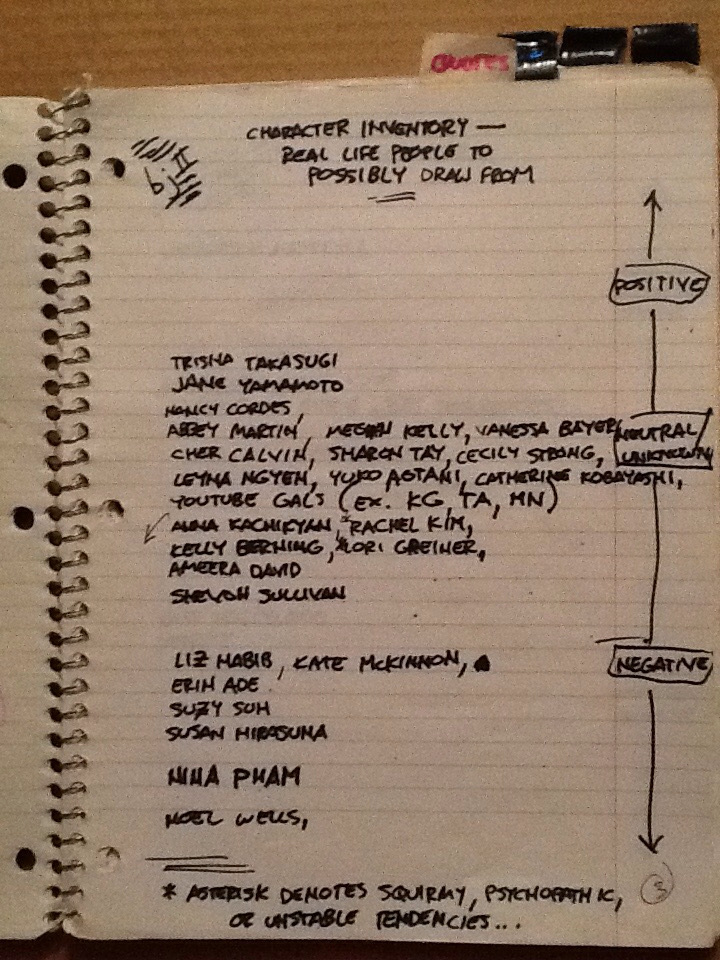 QUOTES
CHARACTER INVENTORY —
REAL LIFE PEOPLE TO
POSSIBLY DRAW FROM
POSITIVE
TRISHA TAKASUGI
JANE YAMAMOTO
NANCY CORDES,
ABBEY MARTIN, MEGHN KELLY, VANESSA BAYER,
NEUTRAL/
CHER CALVIN, SHARON TAY, CECILY STRONG,
UNKNOWN
LEYNA NGYEN, YUKO AOTANI, CATHERINE KOBAYASHI,
YOUTUBE GALS (EX. KG, TA, MN)
ANNA KACHIKYAN, *RACHEL KIM,
KELLY BERNING, *LORI GREINER,
AMEERA DAVID
SHEVON SULLIVAN
LIZ HABIB, KATE MCKINNON,
NEGATIVE
ERIN ADE
SUZY SUH
SUSAN HIRASUNA
NINA PHAM
NOEL WELLS,
* ASTERISK DENOTES SQUIRMY, PSYCHOPATHIC,
OR UNSTABLE TENDENCIES...
3